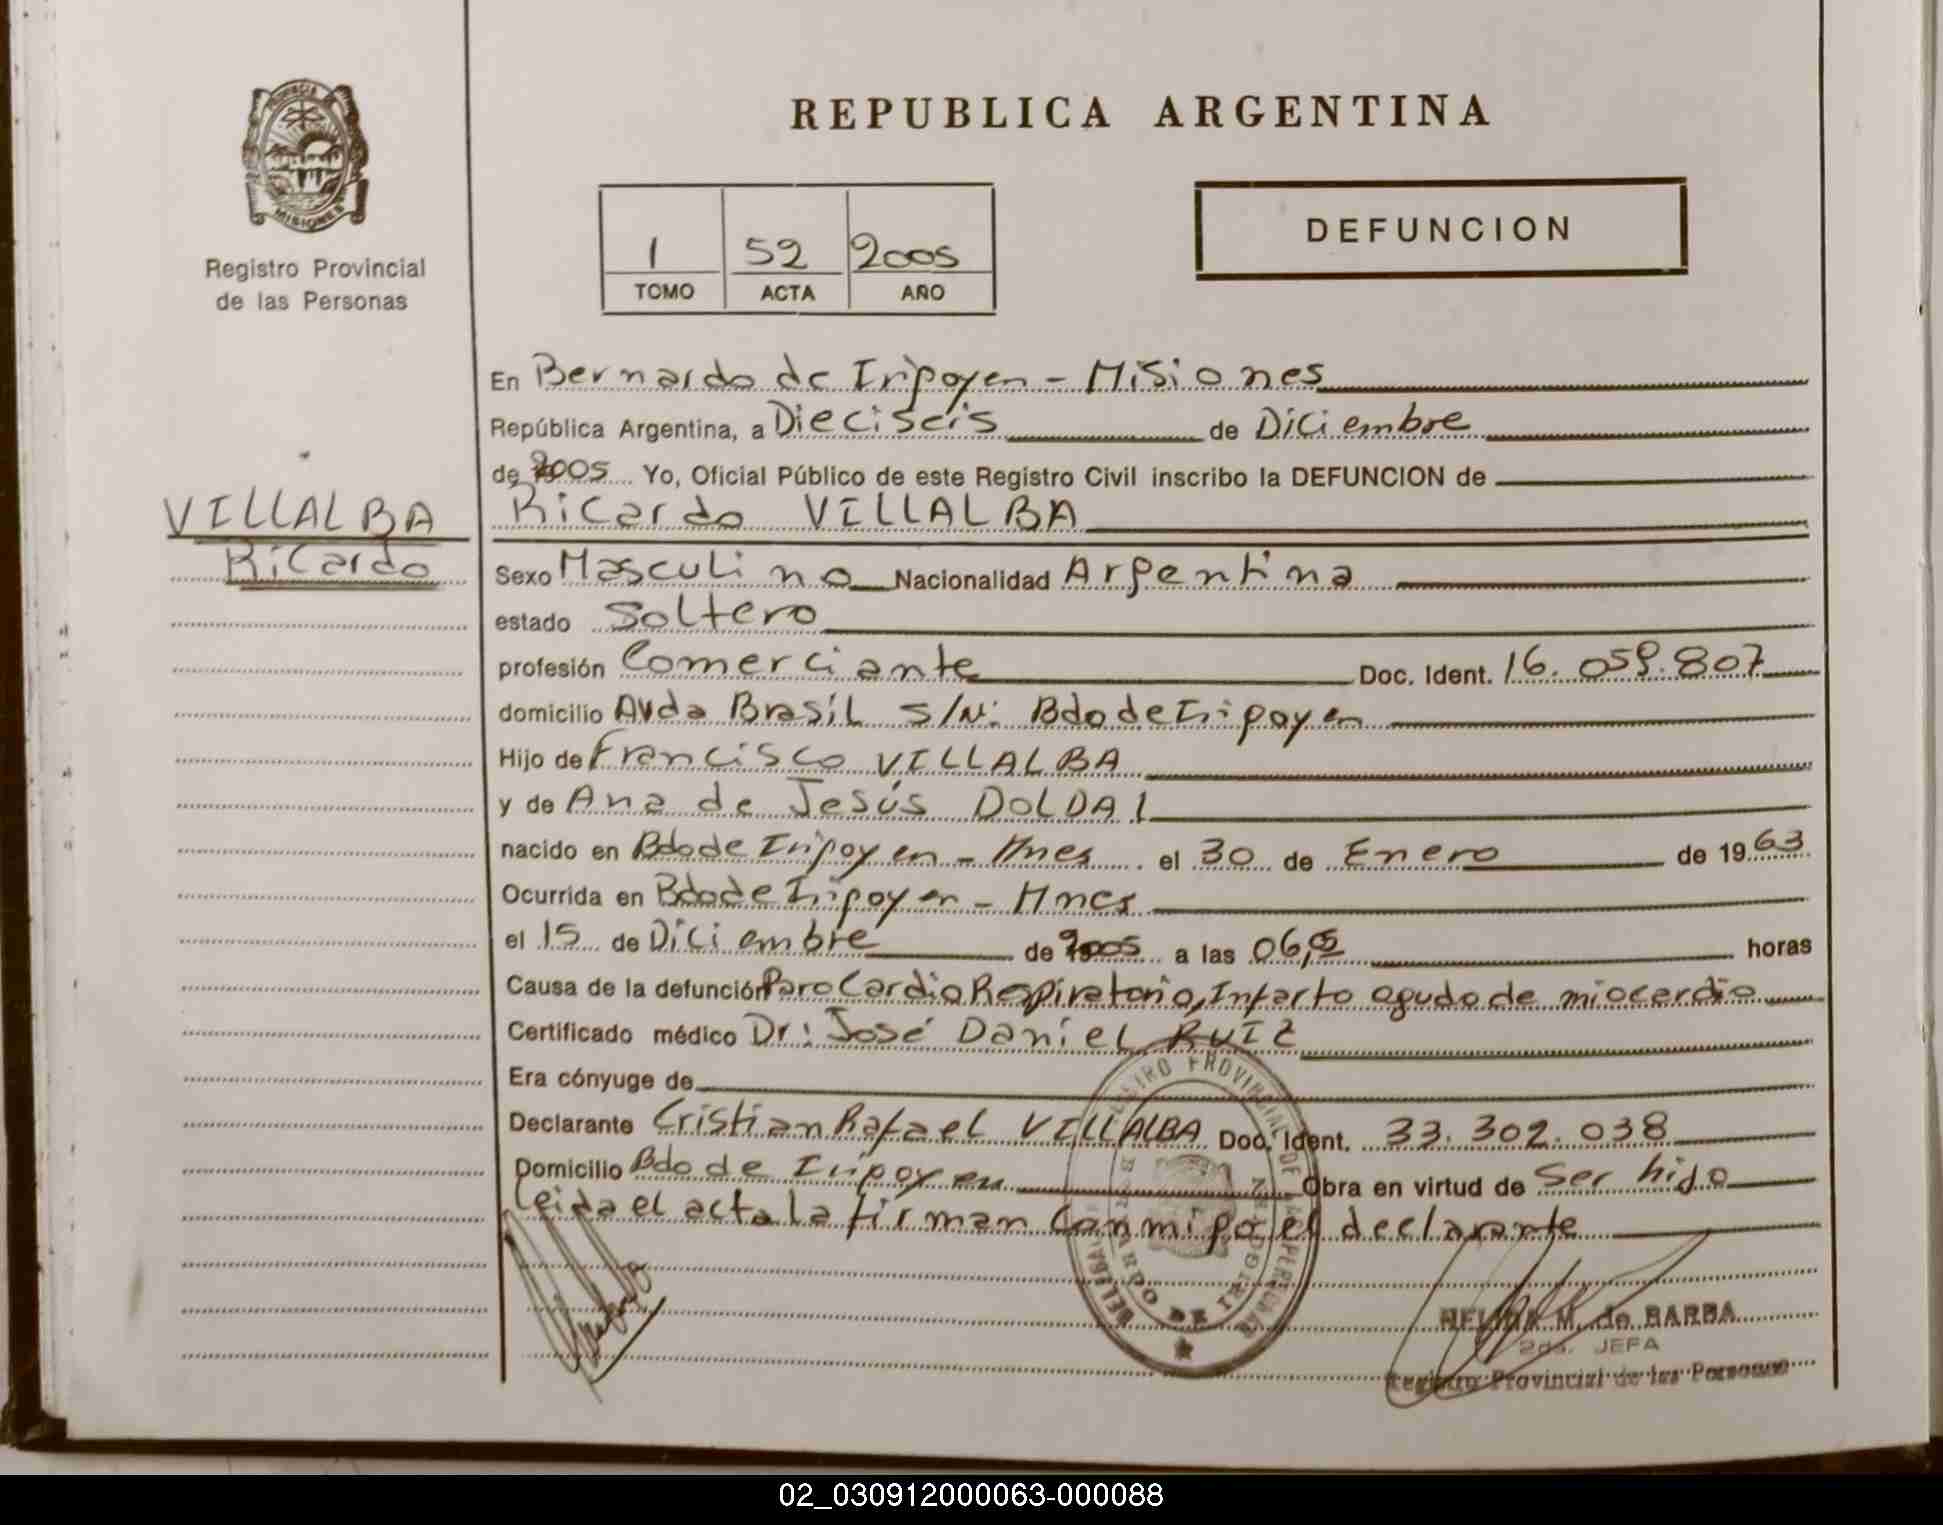 PROVINCIA DE
MISIONES
Registro Provincial
de las Personas
REPUBLICA ARGENTINA
1 52 2005
TOMO ACTA AÑO
DEFUNCION
En Bernardo de Irigoyen - Misiones
República Argentina, a Dieciseis de Diciembre
de 2005 Yo, Oficial Público de este Registro Civil inscribo la DEFUNCION de
VILLALBA
Ricardo
Ricardo VILLALBA
Sexo Masculino Nacionalidad Argentina
estado Soltero
profesión Comerciante Doc. Ident. 16.059.807
domicilio Avda Brasil s/N: Bdo de Irigoyen
Hijo de Francisco VILLALBA
y de Ana de Jesús DOLDAI
nacido en Bdo de Irigoyen - Mnes. el 30 de Enero de 1963
Ocurrida en Bdo de Irigoyen - Mnes
el 15 de Diciembre de 2005 a las 06,05 horas
Causa de la defunción Paro Cardio Respiratorio, Infarto agudo de miocardio
Certificado médico Dr: José Daniel RUIZ
Era cónyuge de
Declarante Cristian Rafael VILLALBA Doc. Ident. 33.302.038
Domicilio Bdo de Irigoyen Obra en virtud de Ser hijo
Leida el acta la firman con migo el declarante
M. de BARBA
2da. JEFA
Registro Provincial de las Personas
02_030912000063-000088